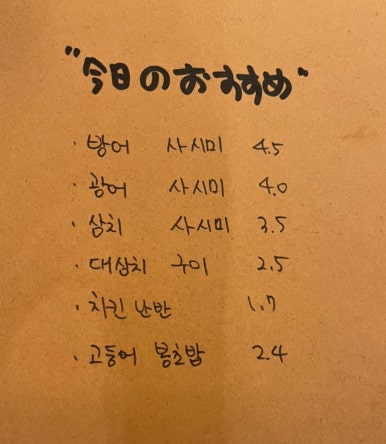 "今日のおすすめ"
· 방어 사시미 4.5
· 광어 사시미 4.0
· 삼치 사시미 3.5
· 대삼치 구이 2.5
· 치킨 난반 1.7
· 고등어 봉초밥 2.4